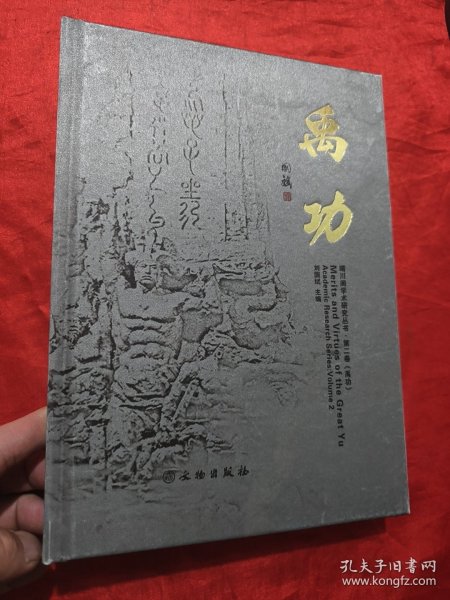 禹功
晴川阁学术研究丛书·第二卷（禹功）
Merits and Virtues of the Great Yu
Academic Research Series:Volume 2
刘国斌 主编
文物出版社
孔夫子旧书网
www.kongfz.com